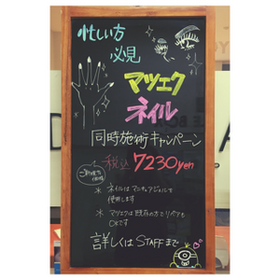 忙しい方
必見
マツエク
ネイル
同時施術キャンペーン
税込 7230yen
※ ネイルは
使用します
※ マツエクは既存の方もリペアも
OKです
詳しくはSTAFFまで